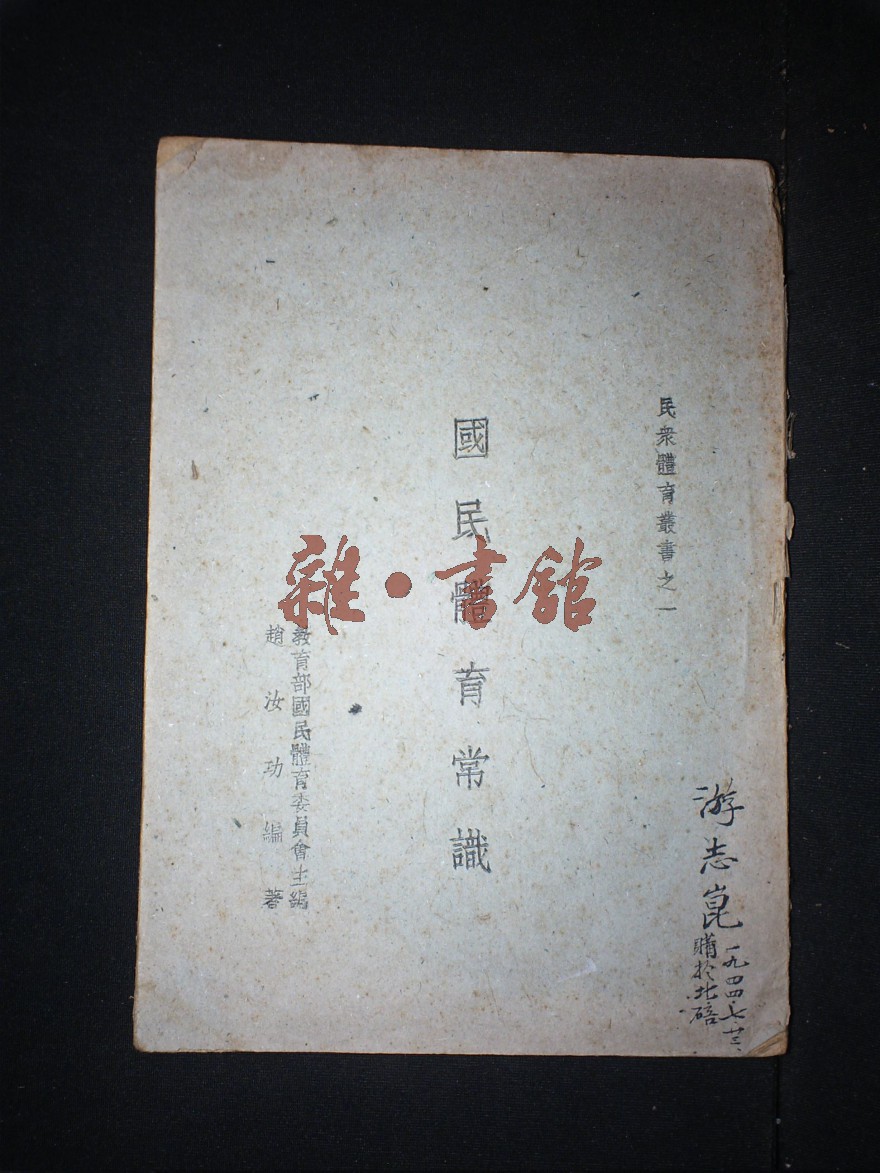 民衆體育叢書之一
國民體育常識
教育部國民體育委員會主編
趙汝功編著
游志崑
一九四四·七·廿三、
購於北碚
雜·書館